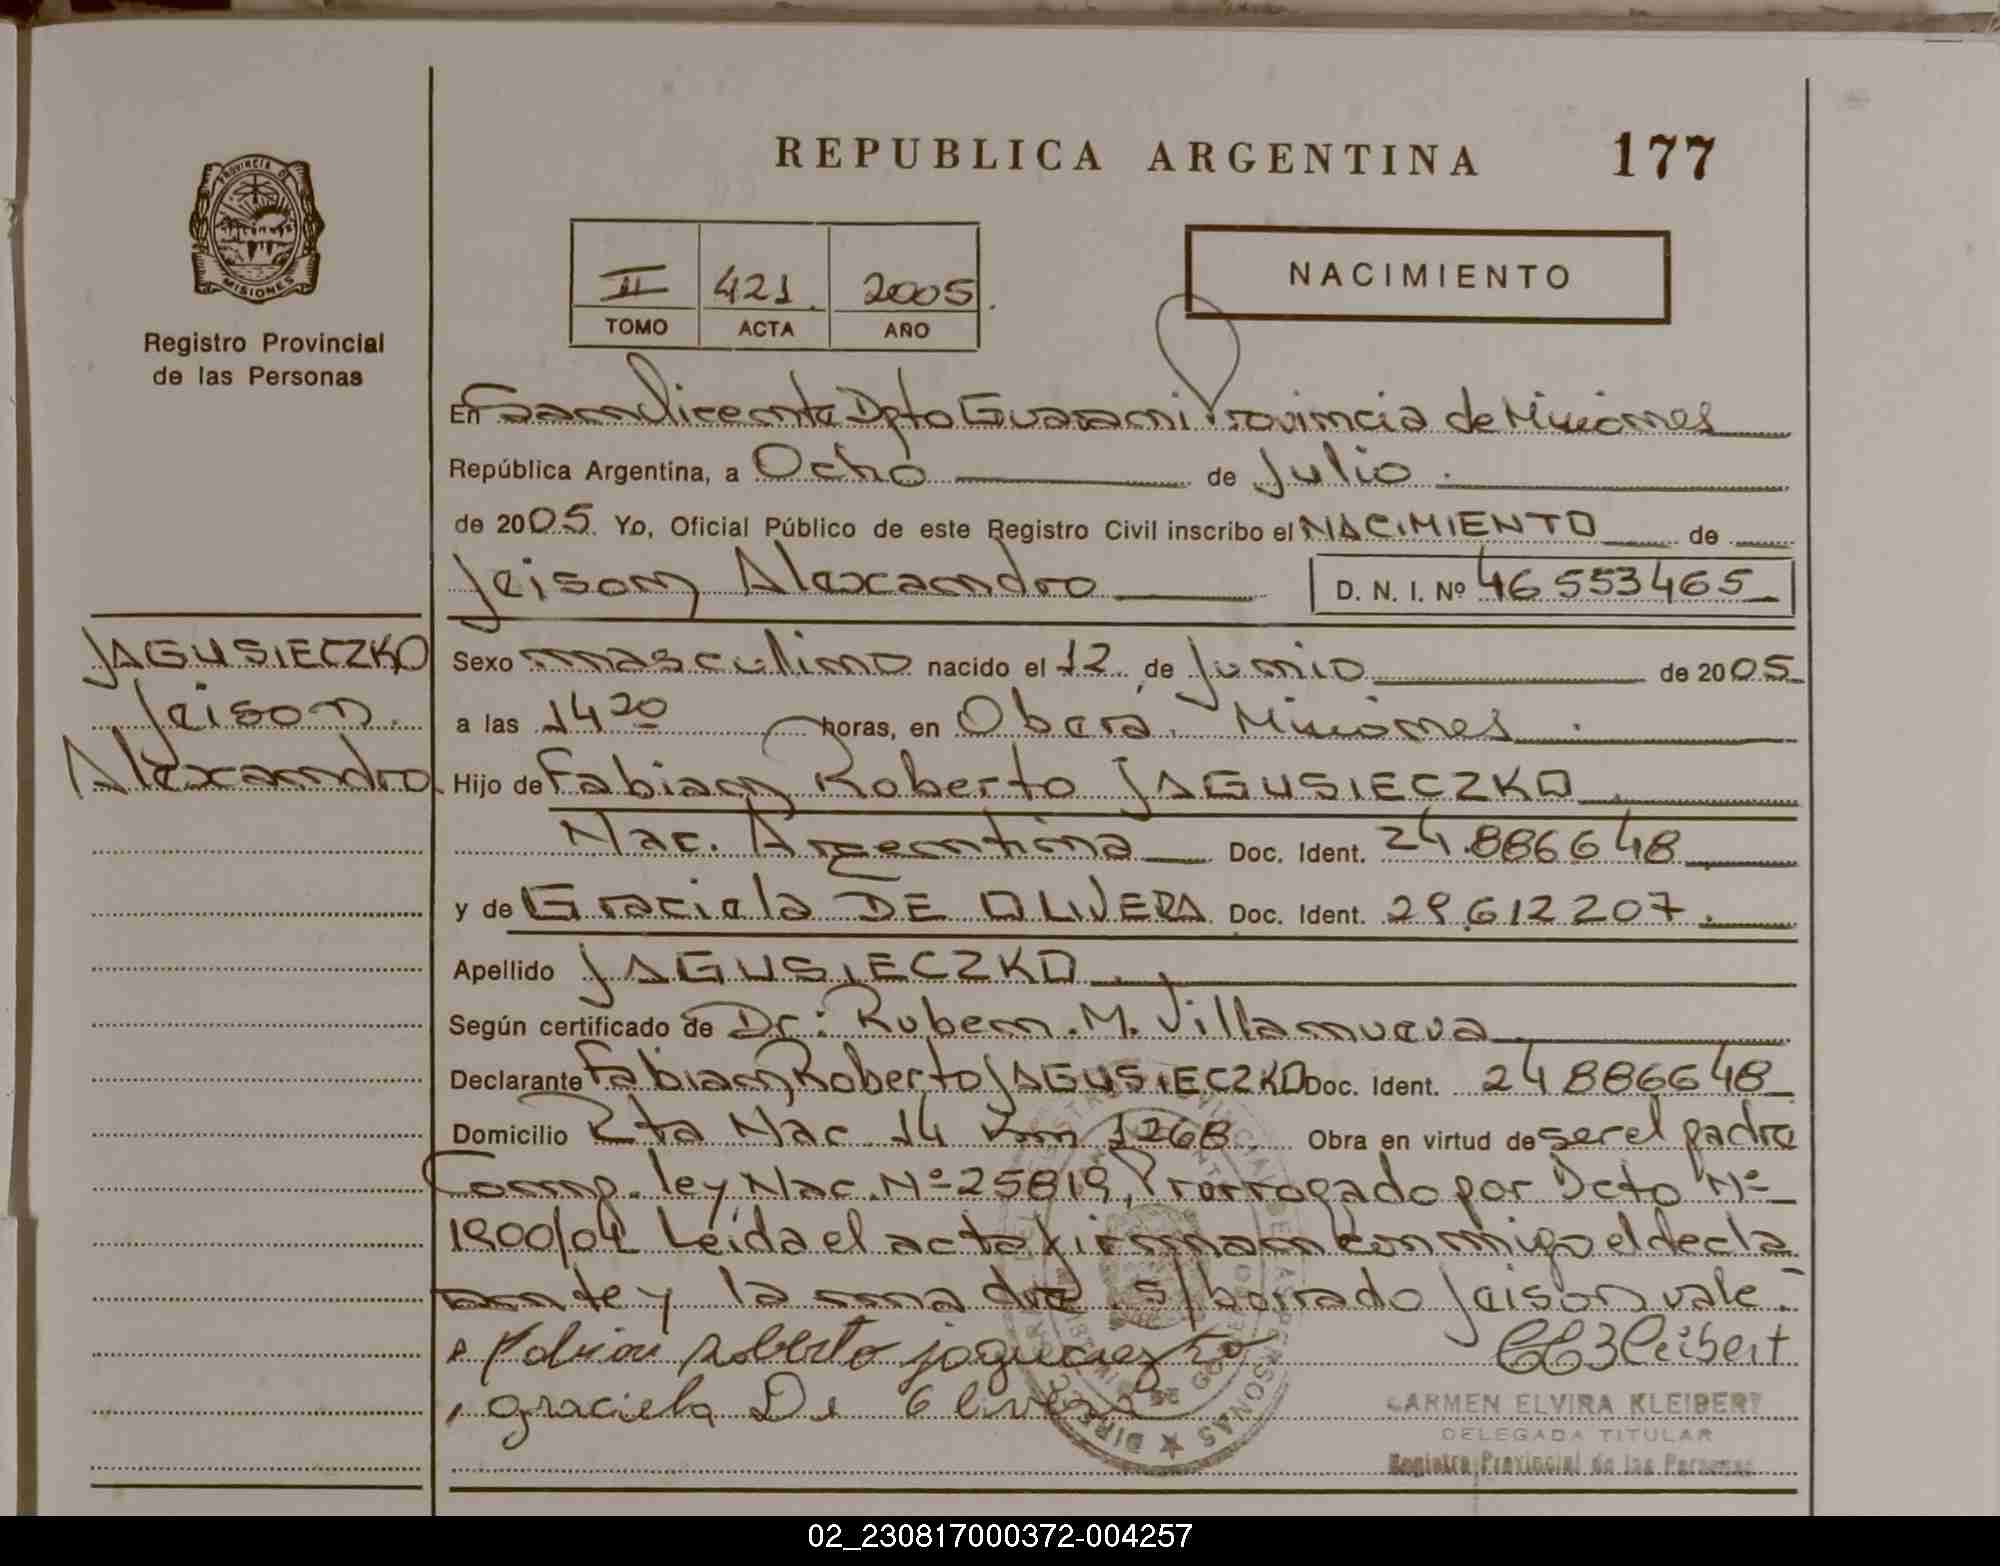 REPUBLICA ARGENTINA 177
PROVINCIA DE
MISIONES
Registro Provincial
de las Personas
II 421 2005
TOMO ACTA AÑO
NACIMIENTO
En San Vicente Dpto Guarani Provincia de Misiones
República Argentina, a Ocho de Julio
de 2005. Yo, Oficial Público de este Registro Civil inscribo el NACIMIENTO de
Jeison Alexandro D. N. I. Nº 46 553465
JAGUSIECZKO
Jeison
Alexandro
Sexo masculino nacido el 12 de Junio de 2005
a las 14 20 horas, en Obera Misiones
Hijo de Fabian Roberto JAGUSIECZKO
Nac. Argentina Doc. Ident. 24.886648
y de Graciela DE OLIVERA Doc. Ident. 29.612207
Apellido JAGUSIECZKO
Según certificado de Dr: Ruben.M.Villanueva
Declarante Fabian Roberto JAGUSIECZKO Doc. Ident. 24 886648
Domicilio Rta Nac 14 Km 1268 Obra en virtud de ser el padre
Comp. ley Nac. Nº 25819, Prorrogado por Dcto Nº
1900/04 Leida el acta firman conmigo el decla
rante y la madre. s/borrado Jeison vale.-
Fabian Roberto jagucieszko
graciela De Olivera
CEKleibert
CARMEN ELVIRA KLEIBERT
DELEGADA TITULAR
Registro Provincial de las Personas
02_230817000372-004257